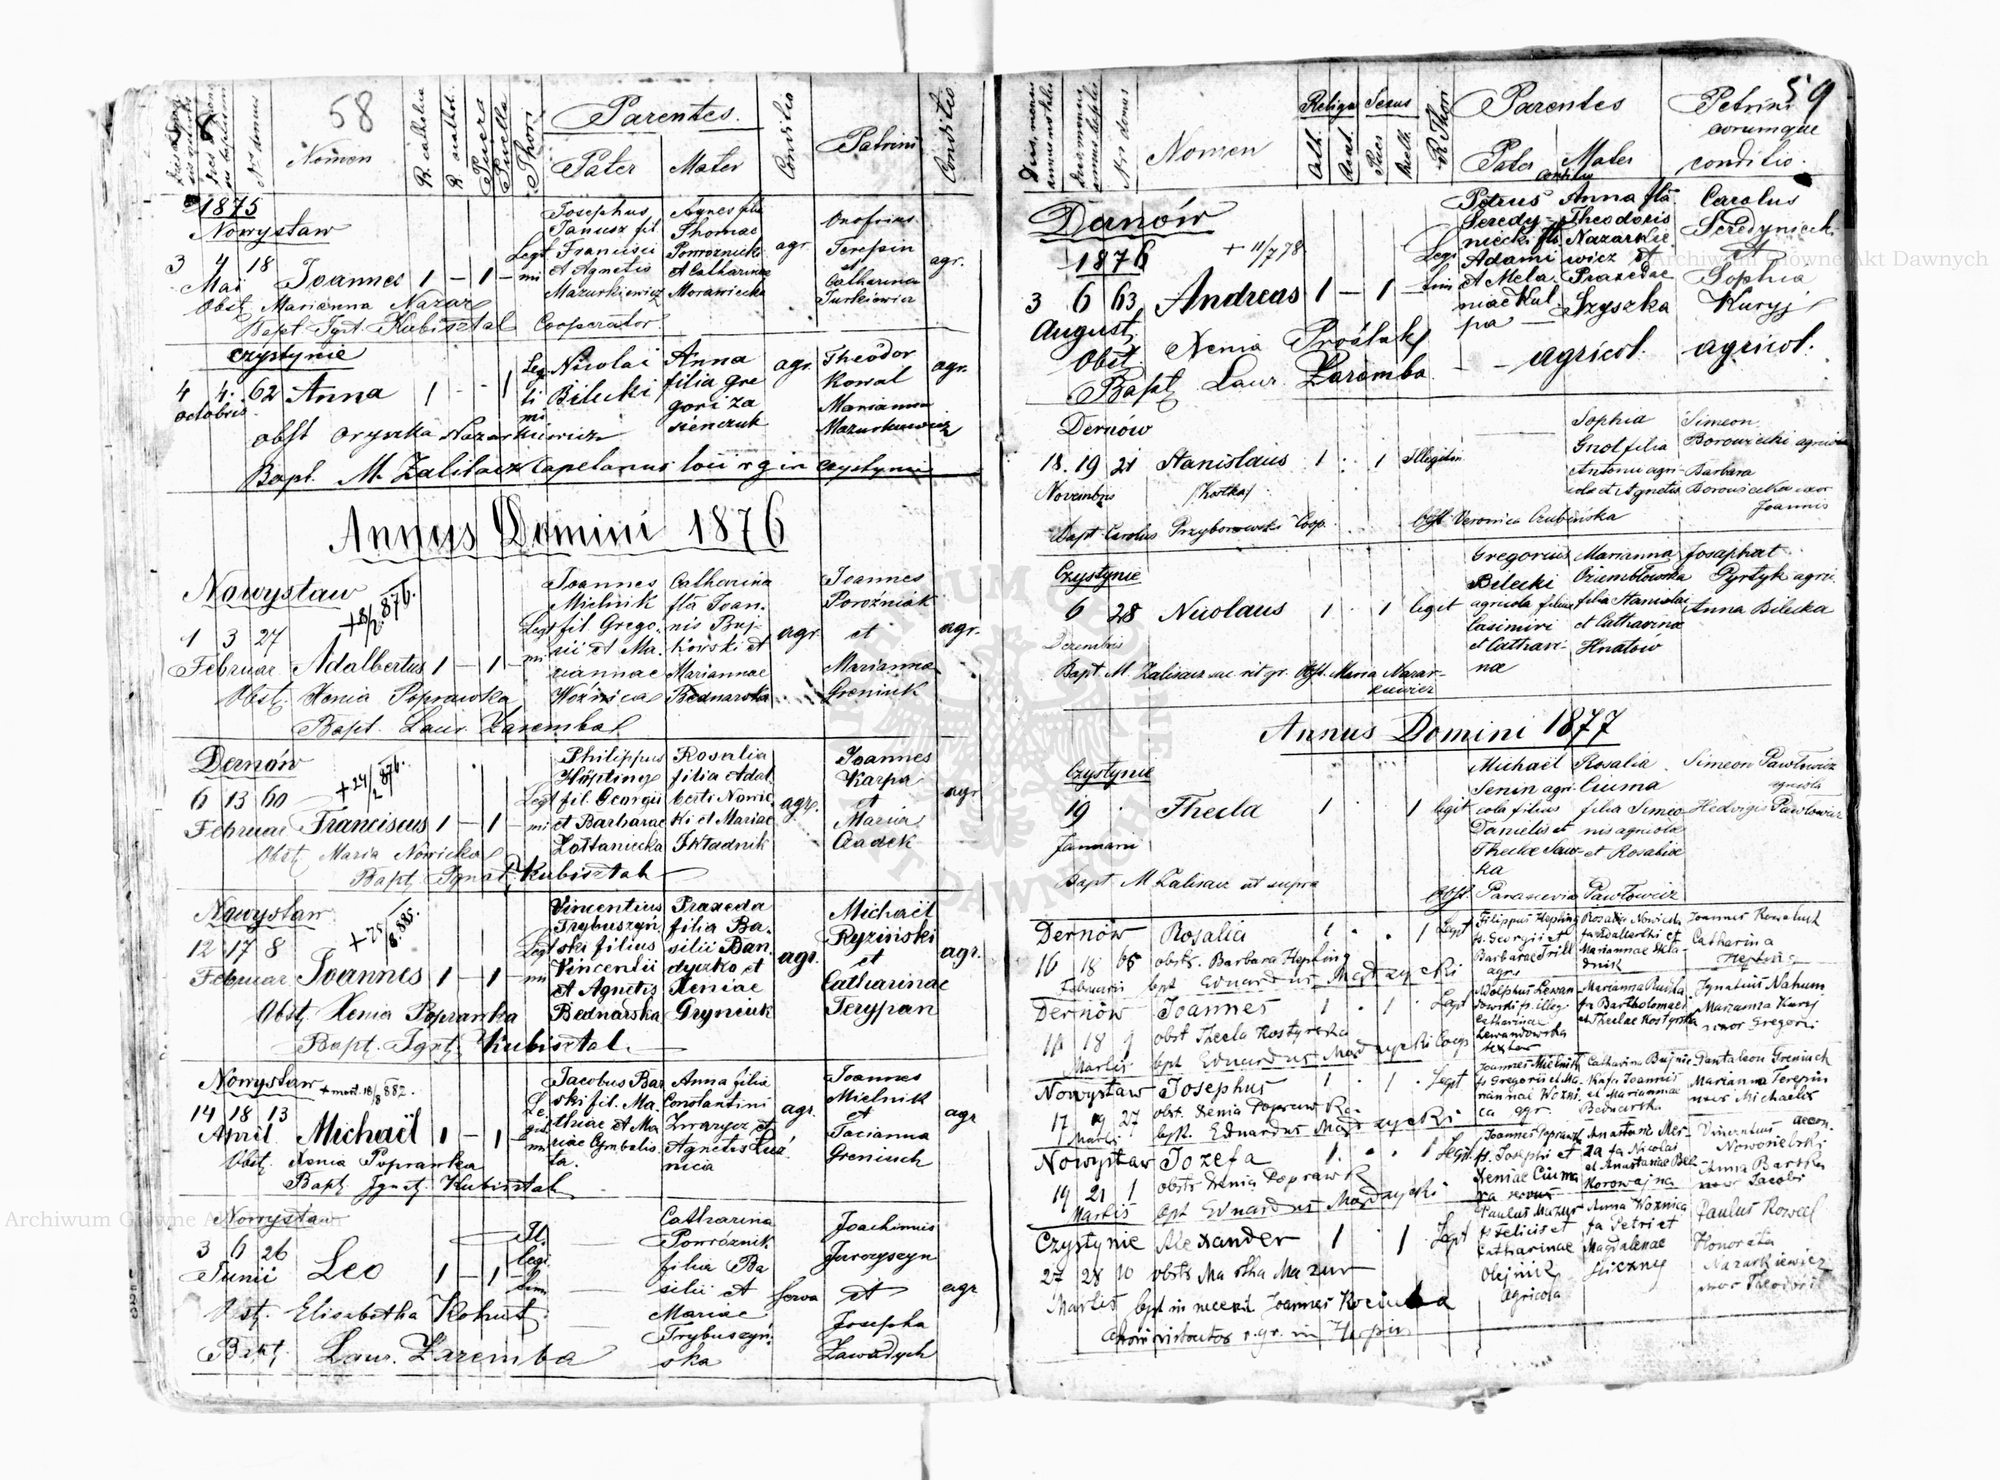 58
Nomen
Pr. catholica
R. acathol.
Puera
Puella
Thori
Parentes.
Pater
Mater
Conditio
Patrini
Conditio
1875
Nowystaw
3 4 18
Mai Joannes 1 – 1 –
Legi
mi
Josephus
Janusz fil
Francisci
et Agnetis
Mazurkiewicz
Agnes filia
Thomae
Powroźnik
et Catharinae
Morawiecka
agr.
Onofrius
Terepin
et
Catharina
Jurkiewicz
agr.
Obst. Marianna Nazar
Bapt. Ignt. Kubisztal Cooperator.
Czystynie
4 4. 62 Anna 1 - - 1
Octobris
Leg
ti
mi
Nicolai
Bilecki
Anna
filia Gre
gori Za
sienczuk
agr.
Theodor
Kowal
Marianna
Mazurkiewicz
agr.
obst Oryszka Nazarkiewicz
Bapt. M. Zalitacz Capelanus loci r g in Czystynie
Annus Domini 1876
Nowystaw
+ 18/2 876.
1 3 27
Februar Adalbertus 1 – 1 –
Legt
mi
Joannes
Mielnik
fil. Grego.
rii et Ma.
riannae
Woźnica
Catharina
fla Joan.
nis Buj-
kowski et
Mariannae
Bednarska
agr.
Joannes
Poroźniak
et
Marianna
Greniuk
agr.
Obst. Xenia Poprawska
Bapt. Laur. Zaremba
Dernów
+ 24/2 876.
6 13 60
Februar Franciscus 1 – 1 –
Legt
mi
Philippus
Höpting
fil. Georgii
et Barbarae
Lottaniecka
Rosalia
filia Adal
berti Nowic
ki et Mariae
Składnik
agr.
Joannes
Karpa
et
Maria
Czadek
agr
Obst. Maria Nowicka
Bapt. Ignat. Kubisztal
Nowystaw
+ 25/8.885.
12 17 8
Februar Joannes 1 – 1 –
Legt
mi
Vincentius
Trybuszyń
ski filius
Vincentii
et Agnetis
Bednarska
Praxeda
filia Ba.
silii Ban
dyszko et
Xeniae
Gryniuk
agr.
Michaël
Ryziński
et
Catharinae
Terypan
agr.
Obst. Xenia Popranka
Bapt. Ignt. Kubisztal.
Nowystaw + mort. 18/8 882.
14 18 13
April. Michaël 1 – 1 –
Le
git
mi
Jacobus Bar
ski fil. Ma.
thiae et Ma
riae Cymbalis.
ta.
Anna filia
Constantini
Zwarycz et
Agnetis Luź
nicia
agr.
Joannes
Mielnik
et
Tacianna
Greniuch
agr
Obst. Xenia Popranka
Bapt. Ignt. Kubisztal
Nowystaw
3 6 26
Junii Leo 1 – 1 –
Il.
legi.
tim.
Catharina
Powróznik
filia Ba
silii et
Mariae
Trybuszyń.
ska
serva
Joachimus
Juroyszyn
et
Josepha
Zawadych
agr
Obst. Elisabetha Kohut.
Bapt. Laur. Zaremba
59
Nro domus
Nomen
Religio
Cath.
Acat.
Sexus
Puer
Puella
R. Thori
Parentes
Pater
Mater
Conditio
Patrini
eorumque
conditio.
Dernów
1876
+ 11/7 78.
3 6 63 Andreas 1 – 1 –
August.
Legi
tim
Petrus
Seredy-
niecki fls
Adami
et Mela.
niae Kul
pa
Anna fla
Theodoris
Nazarkie.
wicz et
Praxedae
Szyszka
Carolus
Seredyniecki
et
Sophia
Kuryj
Obst Xenia Prośtak
Bapt. Laur. Zaremba - - agricol. agricol.
Dernów
18. 19 21 Stanislaus 1 . 1 Illegitim
Novembris /Kostka/
Sophia
Gnot filia
Antonii agri-
cola et Agnetis
Simeon
Borowiecki agricola
Barbara
Borowiecka uxor
Joannis
Bapt Carolus Przyborowski Coop. Obst. Veronica Czubińska
Czystynie
6 28 Nicolaus 1 . 1 legit
Decembris
Gregorius
Bilecki
agricola filius
Casimiri
et Cathari-
na
Marianna
Oziembłowska
filia Stanislai
et Catharina
Hnatów
Josaphat
Pyrtyk agri.
Anna Bilecka
Bapt M. Zalisacz sac. rit. gr. Obst. Maria Nazar-
kiewicz
Annus Domini 1877
Czystynie
19 . Thecla 1 . 1 legit
Januarii
Michaël
Senin agri-
cola filius
Danielis et
Thecla Saw-
ka
Rosalia
Ciuma
filia Simeo
nis agricola
et Rosalia
Simeon Pawłowicz
agricola
Hedvigis Pawłowicz
Bapt M Zalisacz ut supra
Obst. Parascevia Pawłowicz
Dernów Rosalia 1 . . 1 Legit
16 18 65 obsts. Barbara Hepting
Februaris bpt Eduardus Mażdzyński
Filippus Hepting
fs. Georgii et
Barbarae Trill
agr.
Rosalia Nowicka
fa Adalberthi et
Mariannae Skla-
dnik
Joannes Kowaluk
Catharina
Hepting
Dernów Joannes 1 . 1 . Legit
14 18 9 obst Thecla Kostyrska
Martis. bpt Eduardus Mażdzyński Coop
Adolphus Lewan-
dowski fs. illeg
Catharinae
Lewandowska
Marianna Ruska
fa Bartholomaei
et Theclae Kostyrska
Ignatius Nahum
Marianna Kuryj
uxor Gregorii
Nowystaw Josephus 1 . 1 . Legit
17 19 27 obst. Xenia Poprawska.
Martis bpt. Eduardus Mażdzyński
Joannes Mielnik
fs Gregorii et Ma.
riannae Wozni.
ca agr.
Catharina Bujnic
Ka fa Joannis
et Mariannae
Bednarska
Pantaleon Greniuch
Marianna Terepin
uxor Michaelis
Nowystaw Jozefa 1 . . 1 Legit
19 21 1 obsts Xenia Poprawsk
Martis bpt Eduardus Mażdzyński
Joannes Poprawsk
fs. Josephi et
Xeniae Ciuma
Anastasia Mer-
za fa Nicolai
et Anastasiae Bel
Korowajna
Vincentius
Nowosielski
Anna Barska
uxor Jacobi
Czystynie Alexander 1 1 Legit
27 28 10 obsts Martha Mazur
Martis bpt in necess. Joannes Kociuba
Paulus Mazur
fs Felicis et
Catharinae
Olejnik
agricola
Anna Woznica
fa Petri et
Magdalenae
Sliczny
Paulus Kowal
Honorata
Nazarkiewicz
uxor Theodori
Administrator r. gr. in
Archiwum Główne Akt Dawnych
Archiwum Główne Akt Dawnych